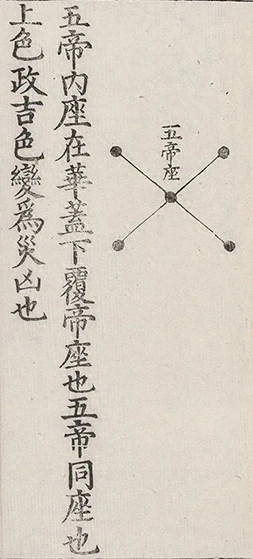 五帝座
五帝内座在華蓋下覆帝座也五帝同座也
上色政吉色變爲災凶也